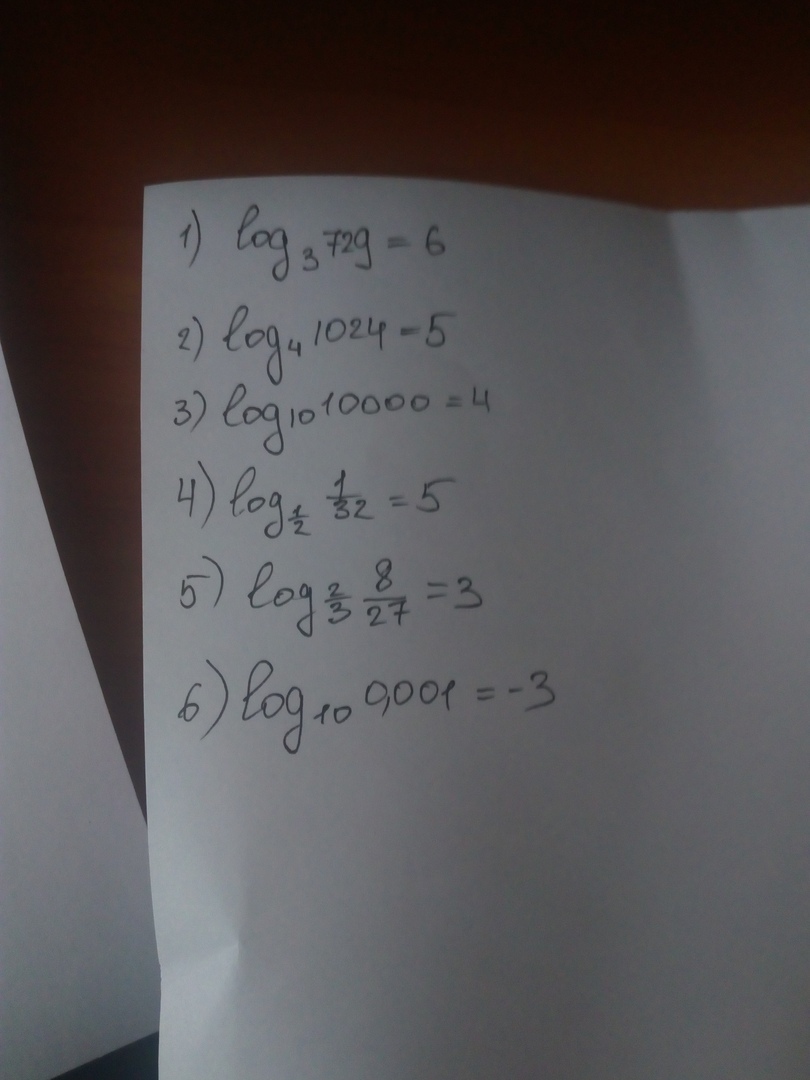 1) log₃ 729 = 6
2) log₄ 1024 = 5
3) log₁₀ 10000 = 4
4) log_{1/2} 1/32 = 5
5) log_{2/3} 8/27 = 3
6) log₁₀ 0,001 = -3